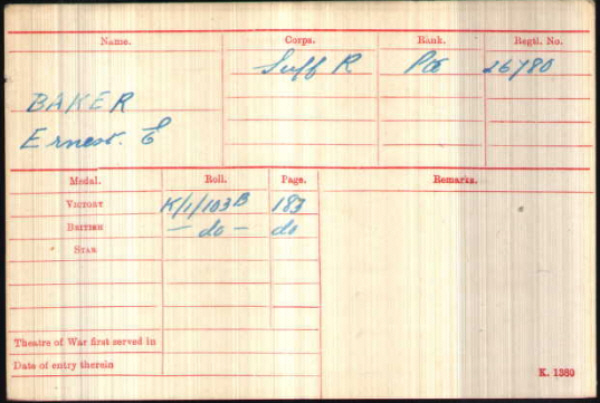 Name. Corps. Rank. Regtl. No.
Suff R Pte 26780
BAKER
Ernest. E
Medal. Roll. Page. Remarks.
VICTORY K/1/103B 183
BRITISH — do — do
STAR
Theatre of War first served in
Date of entry therein
K. 1380